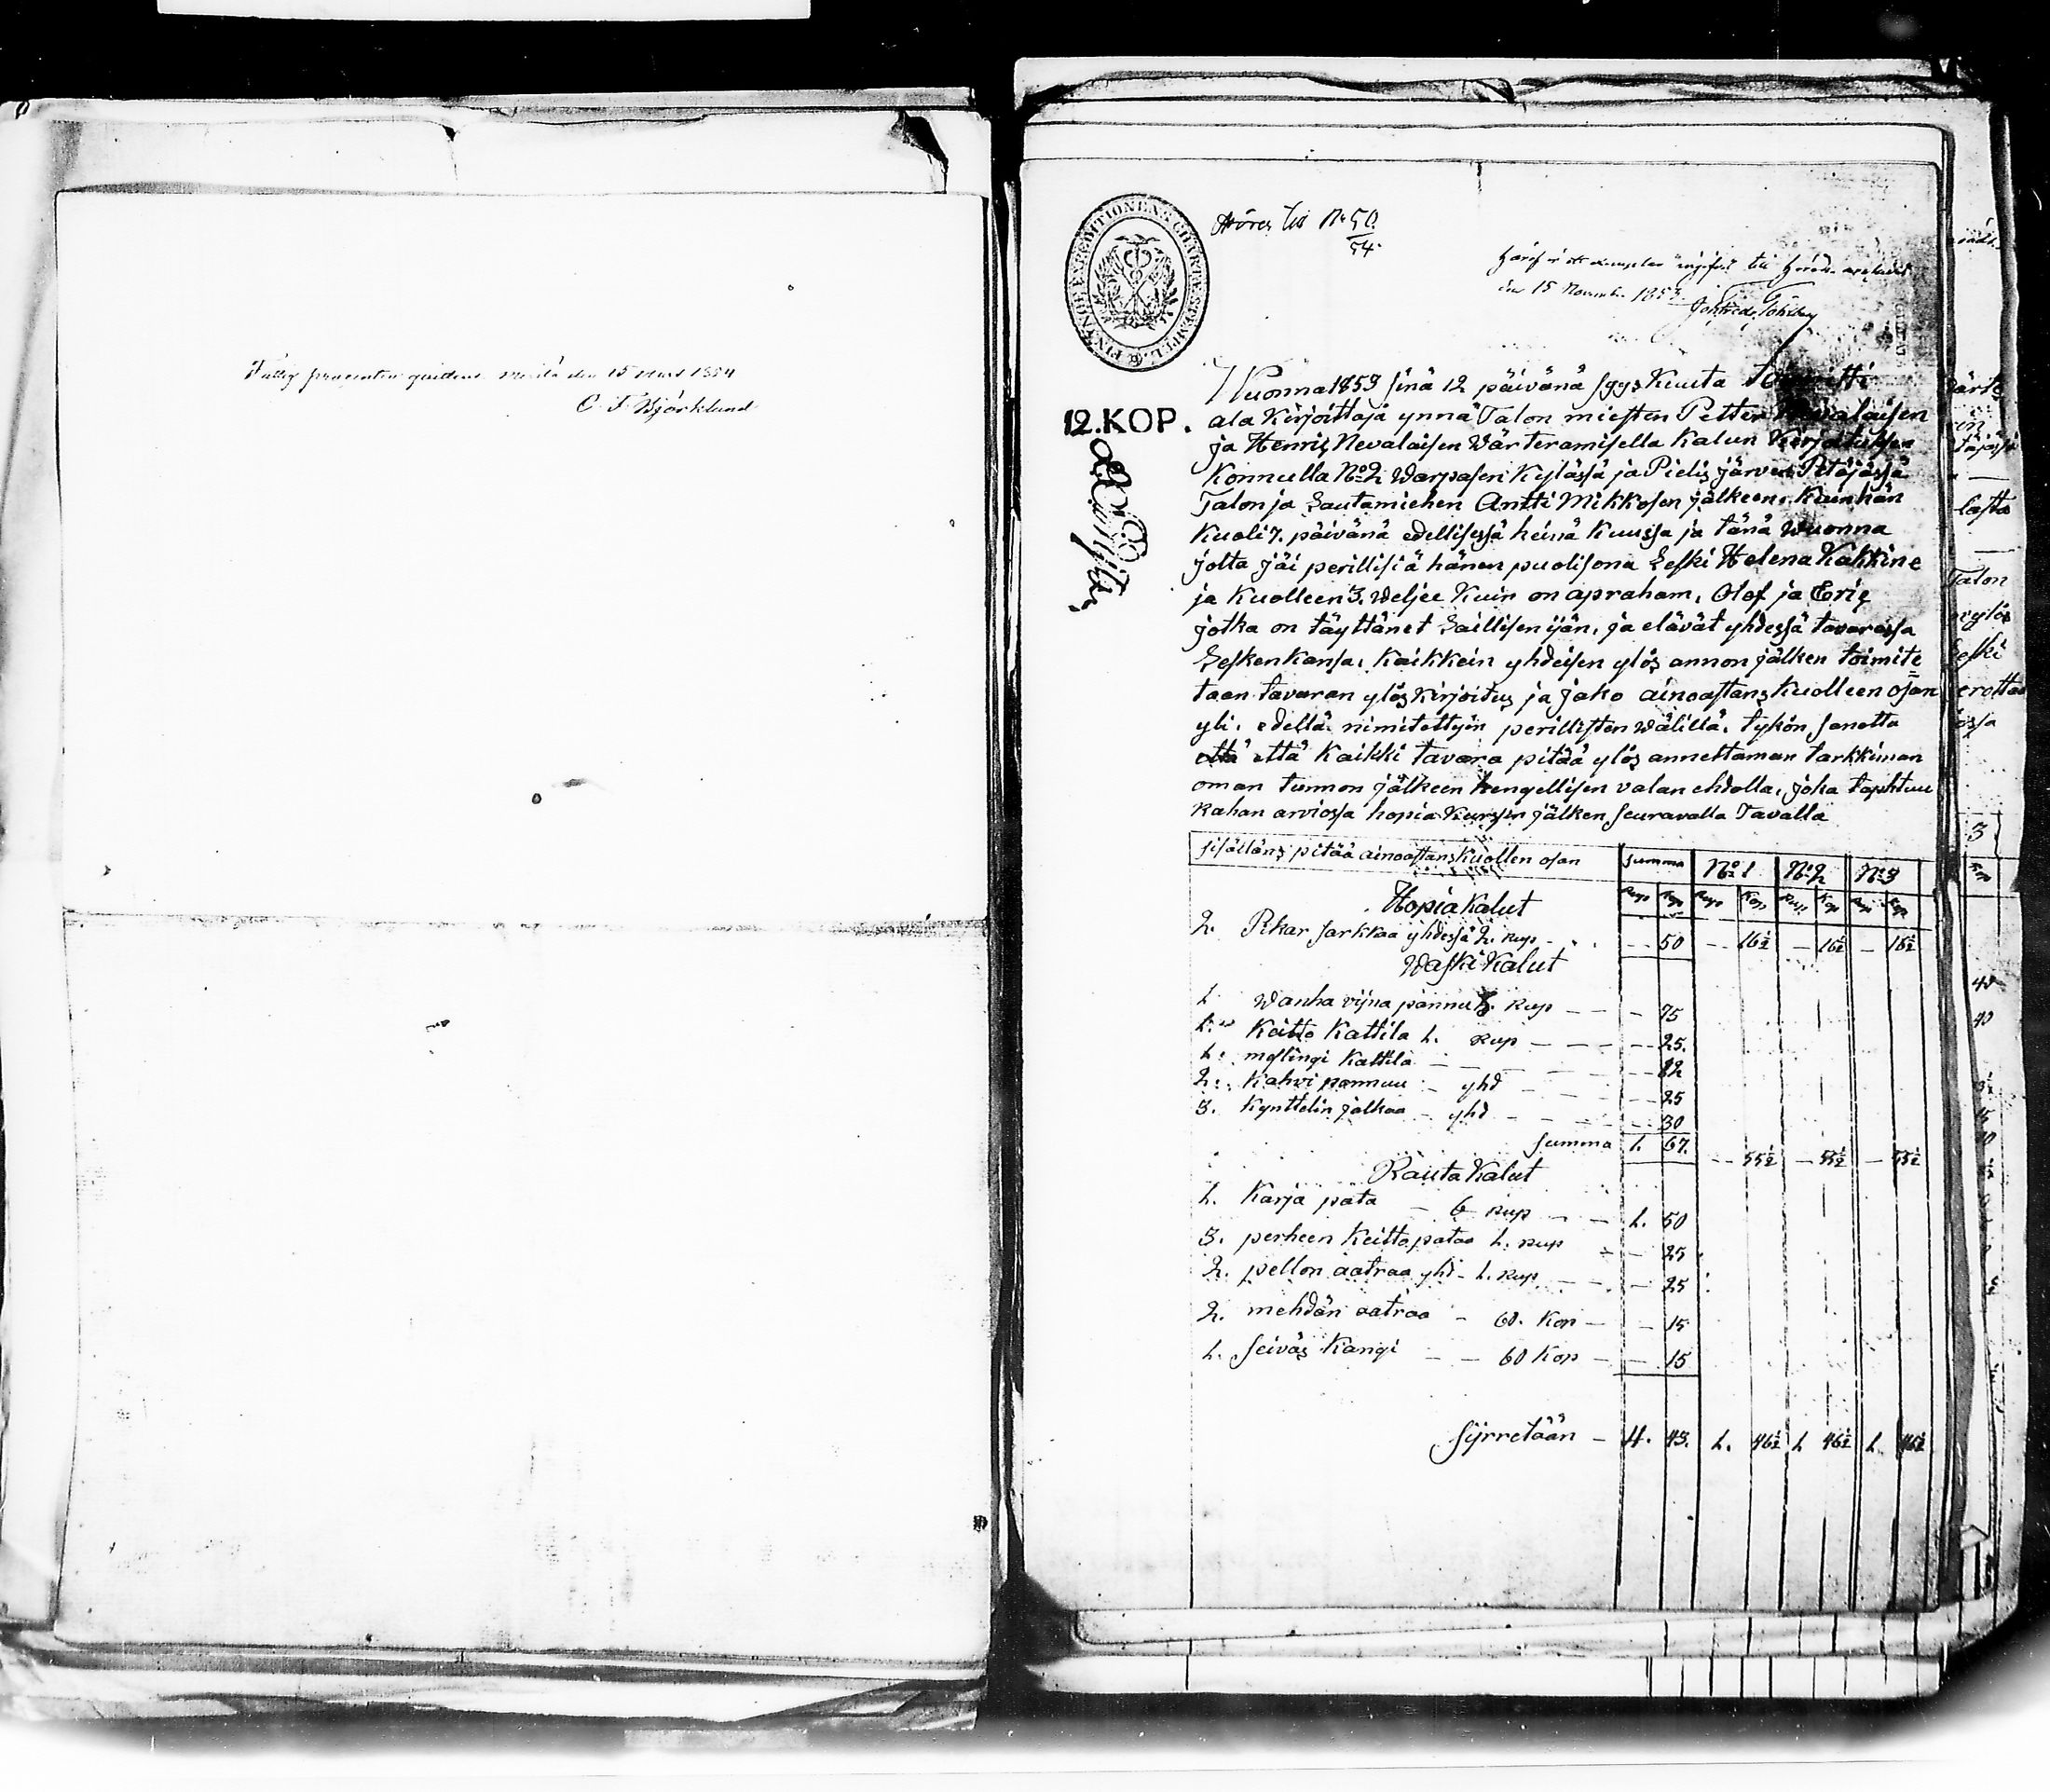 Fattig procenten qvitteras den 15 Mars 1854
C. F. Björklund
FINANCE EXPEDITIONENS CHARTÆ STEMPEL
12. KOP.
Hörer till No 50.
54.
Häraf är ett exemplar ingifvet till Härads
den 15 November 1853
Wuonna 1853 sinä 12 päivänä sygs Kuuta toimitti
ala Kirjoittaja ynnä Talon miesten Petter Nevalaisen
ja Henrig Nevalaisen Wärteramisella Kalun Kirjoituksen
Konnulla No 2 Warpasen Kylässä ja Pielis järven Pitäjässä
Talon ja Lautamiehen Antti Mikkosen jälkeen, Kuin hän
Kuoli 7. päivänä edellisessä heinä Kuussa ja tänä wuonna
jolta jäi perillisiä hänen puolisona Leski Helena Kähkine
ja Kuolleen 3. weljee Kuin on apraham, Olof ja Erig
jotka on täyttänet Laillisen ijän, ja elävät yhdessä tavarassa
Lesken kansa, Kaikkein yhdeisen ylös annon jälken toimite=
taan tavaran ylös Kirjoitus ja jako ainoastans Kuolleen osan
yli, edellä nimitettyin perillisten wälillä, tykön sanottu
että että Kaikki tavara pitää ylös annettaman tarkkiman
oman tunnon jälkeen hengellisen valan ehdolla, joka tapahtuu
Rahan arviossa hopia Kurssin jälken seuravalla Tavalla
sisälläns pitää ainoastans Kuollen osan summa No 1 No 2 No 3
Rup Kop Rup Kop Rup Kop Rup Kop
Hopia Kalut
2. Pikar sarkkaa yhdessä 2. Rup - - 50 - 16½ - 16½ - 16½
Waski Kalut
1. Wanha vijna pannu 3. Rup - - 75
1. Keitto Kattila 1. Rup - - 25.
1. mesingi Kattila - - 12
2. Kahvi pannuu - yhd - - 25
3. Kynttelin jalkaa - yhd - - 30
summa 1. 67. - 55½ - 55½ - 55½
Rauta Kalut
1. Karja pata - 6 Rup - 1. 50
3. perheen Keitto pataa 1. Rup - 25
2. pellon aatraa yhd - 1. Rup - - 25
2. mehdän aatraa - 60. Kop - - 15
1. seiväs Kangi - - 60 Kop - - 15
syrretään - 4. 43. 1. 46½ 1. 46½ 1. 46½